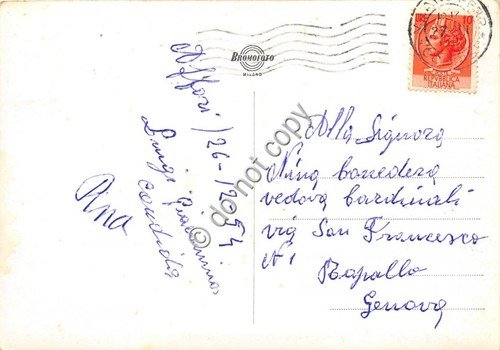 BROMOFOTO
MILANO
L. 10
POSTE
REPVBBLICA
ITALIANA
Affori 26-12-954
Luigi Giacomino
candida
Pina
Alla Signora
Nina
vedova Cardinali
via San Francesco
N 1
Rapallo
Genova
© do not copy